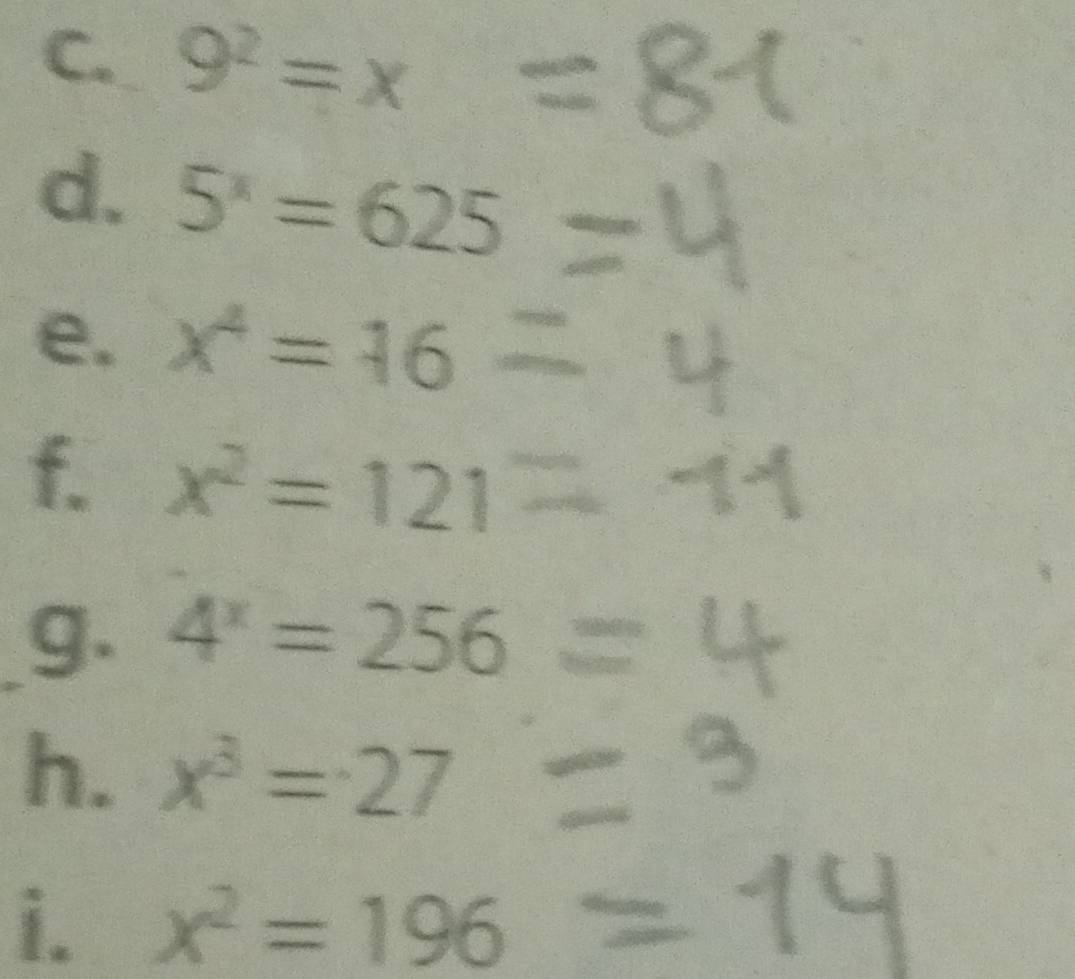 c. 9² = x = 81
d. 5ˣ = 625 = 4
e. x⁴ = 16 = 4
f. x² = 121 = 11
g. 4ˣ = 256 = 4
h. x³ = 27 = 3
i. x² = 196 = 14